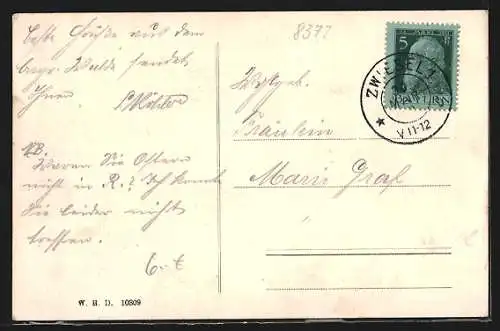 8377
beste Grüße aus dem
bayr. Walde sendet
Ihnen
NB.
Waren Sie Ostern
nicht in R.? Ich konnte
Sie leider nicht
treffen.
W. H. D. 10809
5
BAYERN
ZWIESEL 1
V 11-12
Wohlgeb.
Fräulein
Marie Graf